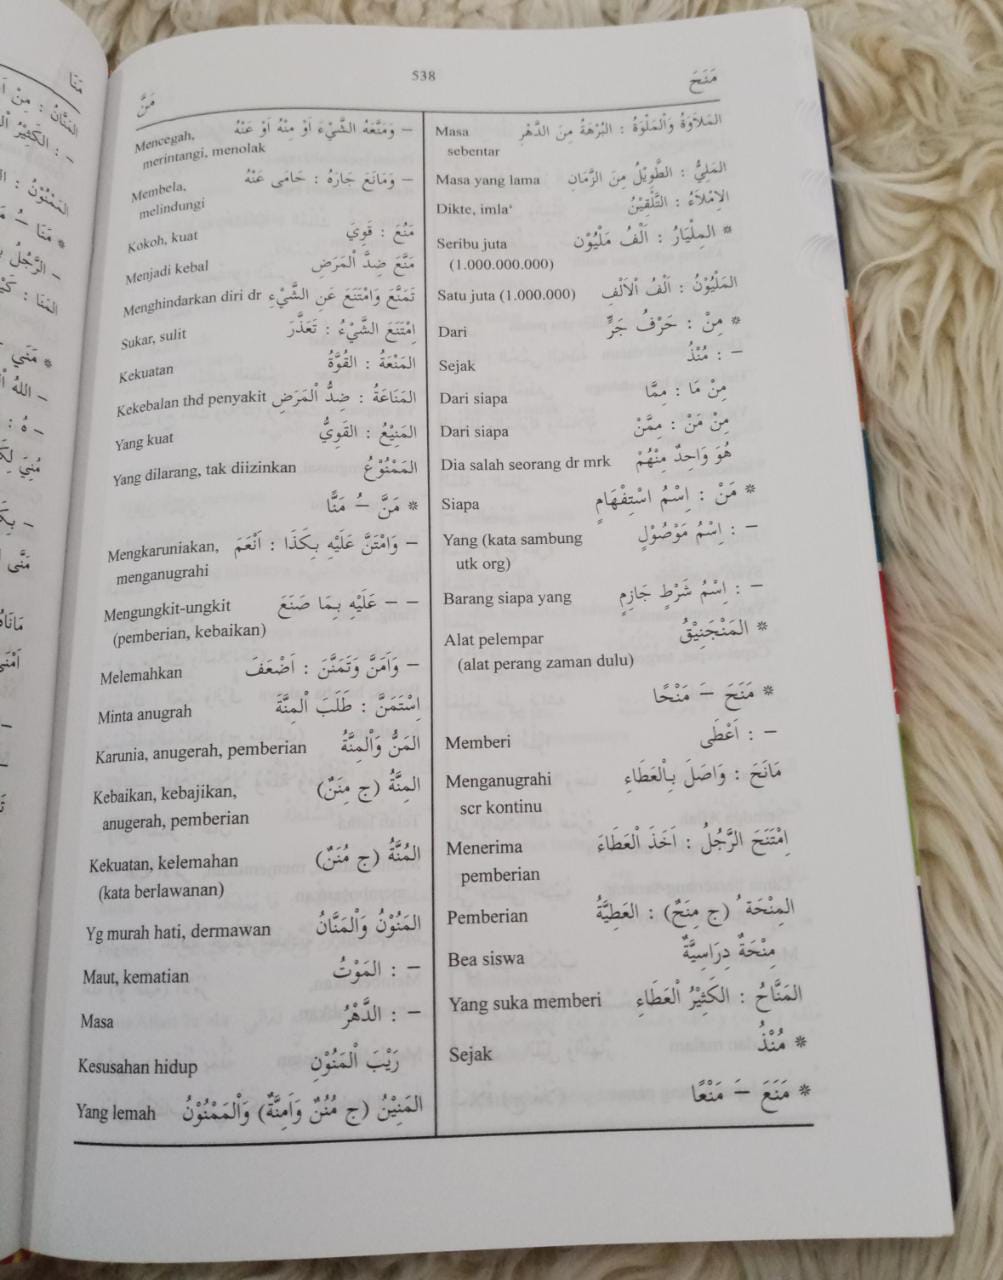 538
مَنَحَ
مَنَّ
المَلَاوَةُ وَالْمَلْوَةُ : البُرْهَةُ مِنَ الدَّهْرِ Masa
sebentar
المَلِيُّ : الطَّوِيْلُ مِنَ الزَّمَانِ Masa yang lama
الاِمْلَاءُ : التَّلْقِيْنُ Dikte, imla‘
* المِلْيَارُ : اَلْفُ مَلْيُوْن Seribu juta
(1.000.000.000)
المَلْيُوْنُ : اَلْفُ الْاَلْفِ Satu juta (1.000.000)
* مِنْ : حَرْفُ جَرٍّ Dari
– : مُنْذُ Sejak
مِنْ مَا : مِمَّا Dari siapa
مِنْ مَنْ : مِمَّنْ Dari siapa
هُوَ وَاحِدٌ مِنْهُمْ Dia salah seorang dr mrk
* مَنْ : اِسْمُ اسْتِفْهَامٍ Siapa
– : اِسْمُ مَوْصُوْلٍ Yang (kata sambung
utk org)
– : اِسْمُ شَرْطٍ جَازِمٍ Barang siapa yang
* المَنْجَنِيْقُ Alat pelempar
(alat perang zaman dulu)
* مَنَحَ – َ مَنْحًا
– : اَعْطَى Memberi
مَانَحَ : وَاصَلَ بِالْعَطَاءِ Menganugrahi
scr kontinu
اِمْتَنَحَ الرَّجُلُ : اَخَذَ الْعَطَاءَ Menerima
pemberian
المِنْحَةُ (ج مِنَحٌ) : العَطِيَّةُ Pemberian
مِنْحَةٌ دِرَاسِيَّةٌ Bea siswa
المَنَّاحُ : الكَثِيْرُ الْعَطَاءِ Yang suka memberi
* مُنْذُ Sejak
* مَنَعَ – َ مَنْعًا
– وَمَنَّعَهُ الشَّيْءَ اَوْ مِنْهُ اَوْ عَنْهُ Mencegah,
merintangi, menolak
– وَمَانَعَ جَارَهُ : حَامَى عَنْهُ Membela,
melindungi
مَنُعَ : قَوِيَ Kokoh, kuat
مَنَّعَ ضِدَّ الْمَرَضِ Menjadi kebal
تَمَنَّعَ وَامْتَنَعَ عَنِ الشَّيْءِ Menghindarkan diri dr
اِمْتَنَعَ الشَّيْءُ : تَعَذَّرَ Sukar, sulit
المَنْعَةُ : القُوَّةُ Kekuatan
المَنَاعَةُ : ضِدُّ الْمَرَضِ Kekebalan thd penyakit
المَنِيْعُ : القَوِيُّ Yang kuat
المَمْنُوْعُ Yang dilarang, tak diizinkan
* مَنَّ – ُ مَنًّا
– وَامْتَنَّ عَلَيْهِ بِكَذَا : اَنْعَمَ Mengkaruniakan,
menganugrahi
– – عَلَيْهِ بِمَا صَنَعَ Mengungkit-ungkit
(pemberian, kebaikan)
– وَاَمَنَّ وَتَمَنَّنَ : اَضْعَفَ Melemahkan
اِسْتَمَنَّ : طَلَبَ الْمِنَّةَ Minta anugrah
المَنُّ وَالْمِنَّةُ Karunia, anugerah, pemberian
المِنَّةُ (ج مِنَنٌ) Kebaikan, kebajikan,
anugerah, pemberian
المُنَّةُ (ج مُنَنٌ) Kekuatan, kelemahan
(kata berlawanan)
المَنُوْنُ وَالْمَنَّانُ Yg murah hati, dermawan
– : المَوْتُ Maut, kematian
– : الدَّهْرُ Masa
رَيْبَ الْمَنُوْنِ Kesusahan hidup
المَنِيْنُ (ج مُنُنٌ وَاَمِنَّةٌ) وَالْمَمْنُوْنُ Yang lemah
مَنَا